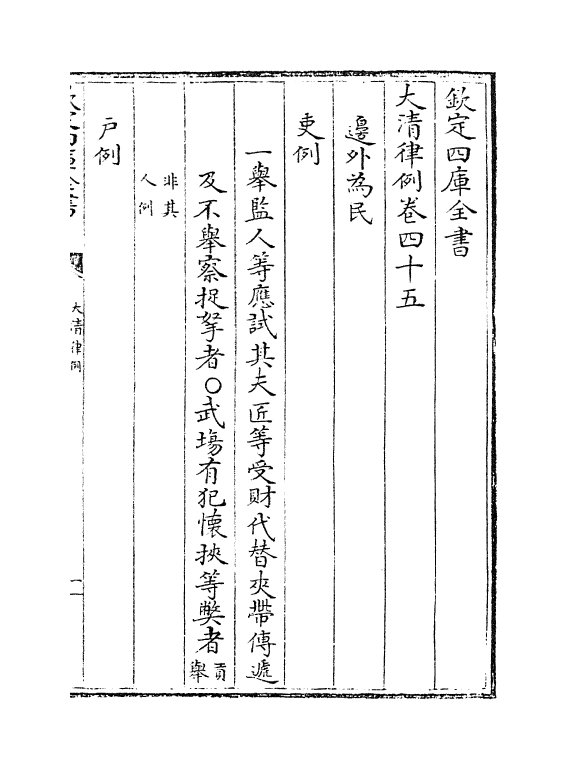 欽定四庫全書
大清律例卷四十五
邊外為民
吏例
一舉監人等應試其夫匠等受財代替夾帶傳遞
及不舉察捉拏者○武場有犯懷挾等弊者貢舉
非其人例
戶例
大清律例
一